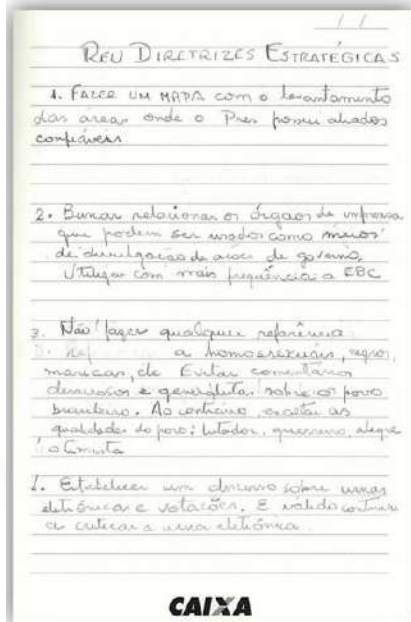 / /
REU DIRETRIZES ESTRATÉGICAS
1. FAZER UM MAPA com o levantamento
das áreas onde o Pres possui aliados
confiáveis.
2. Buscar relacionar os órgãos de imprensa
que podem ser usados como meios
de divulgação de ações de governo.
Utilizar com mais frequência a EBC
3. Não fazer qualquer referência
a homossexuais, negros,
maricas, etc. Evitar comentários
e generalistas sobre o povo
brasileiro. Ao contrário, exaltar as
qualidades do povo: lutador, guerreiro, alegre
, otimista
1. Estabelecer um discurso sobre urnas
eletrônicas e votações. É válido continuar
a criticar a urna eletrônica.
CAIXA